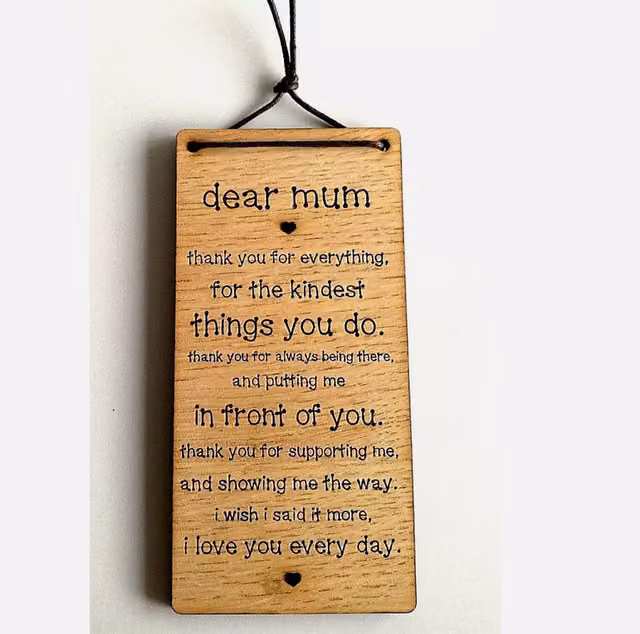 dear mum
thank you for everything,
for the kindest
things you do.
thank you for always being there,
and putting me
in front of you.
thank you for supporting me,
and showing me the way.
i wish i said it more,
i love you every day.